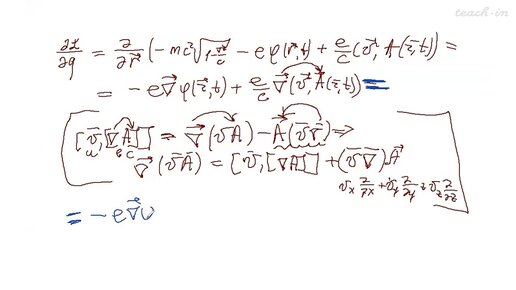 teach-in
∂L/∂q = ∂/∂r⃗ (−mc²√(1−v²/c) − eφ(r⃗,t) + e/c (v⃗, A(r⃗,t)) =
= −e∇⃗φ(r⃗,t) + e/c ∇⃗(v⃗, A⃗(r⃗,t)) =
[v⃗,[∇A⃗]] = ∇⃗(v⃗A) − A⃗(v⃗∇⃗) ⇒
a b c
∇⃗(v⃗A) = [v⃗,[∇A]] + (v⃗∇⃗)A⃗
vx ∂/∂x + vy ∂/∂y + vz ∂/∂z
= −e∇⃗